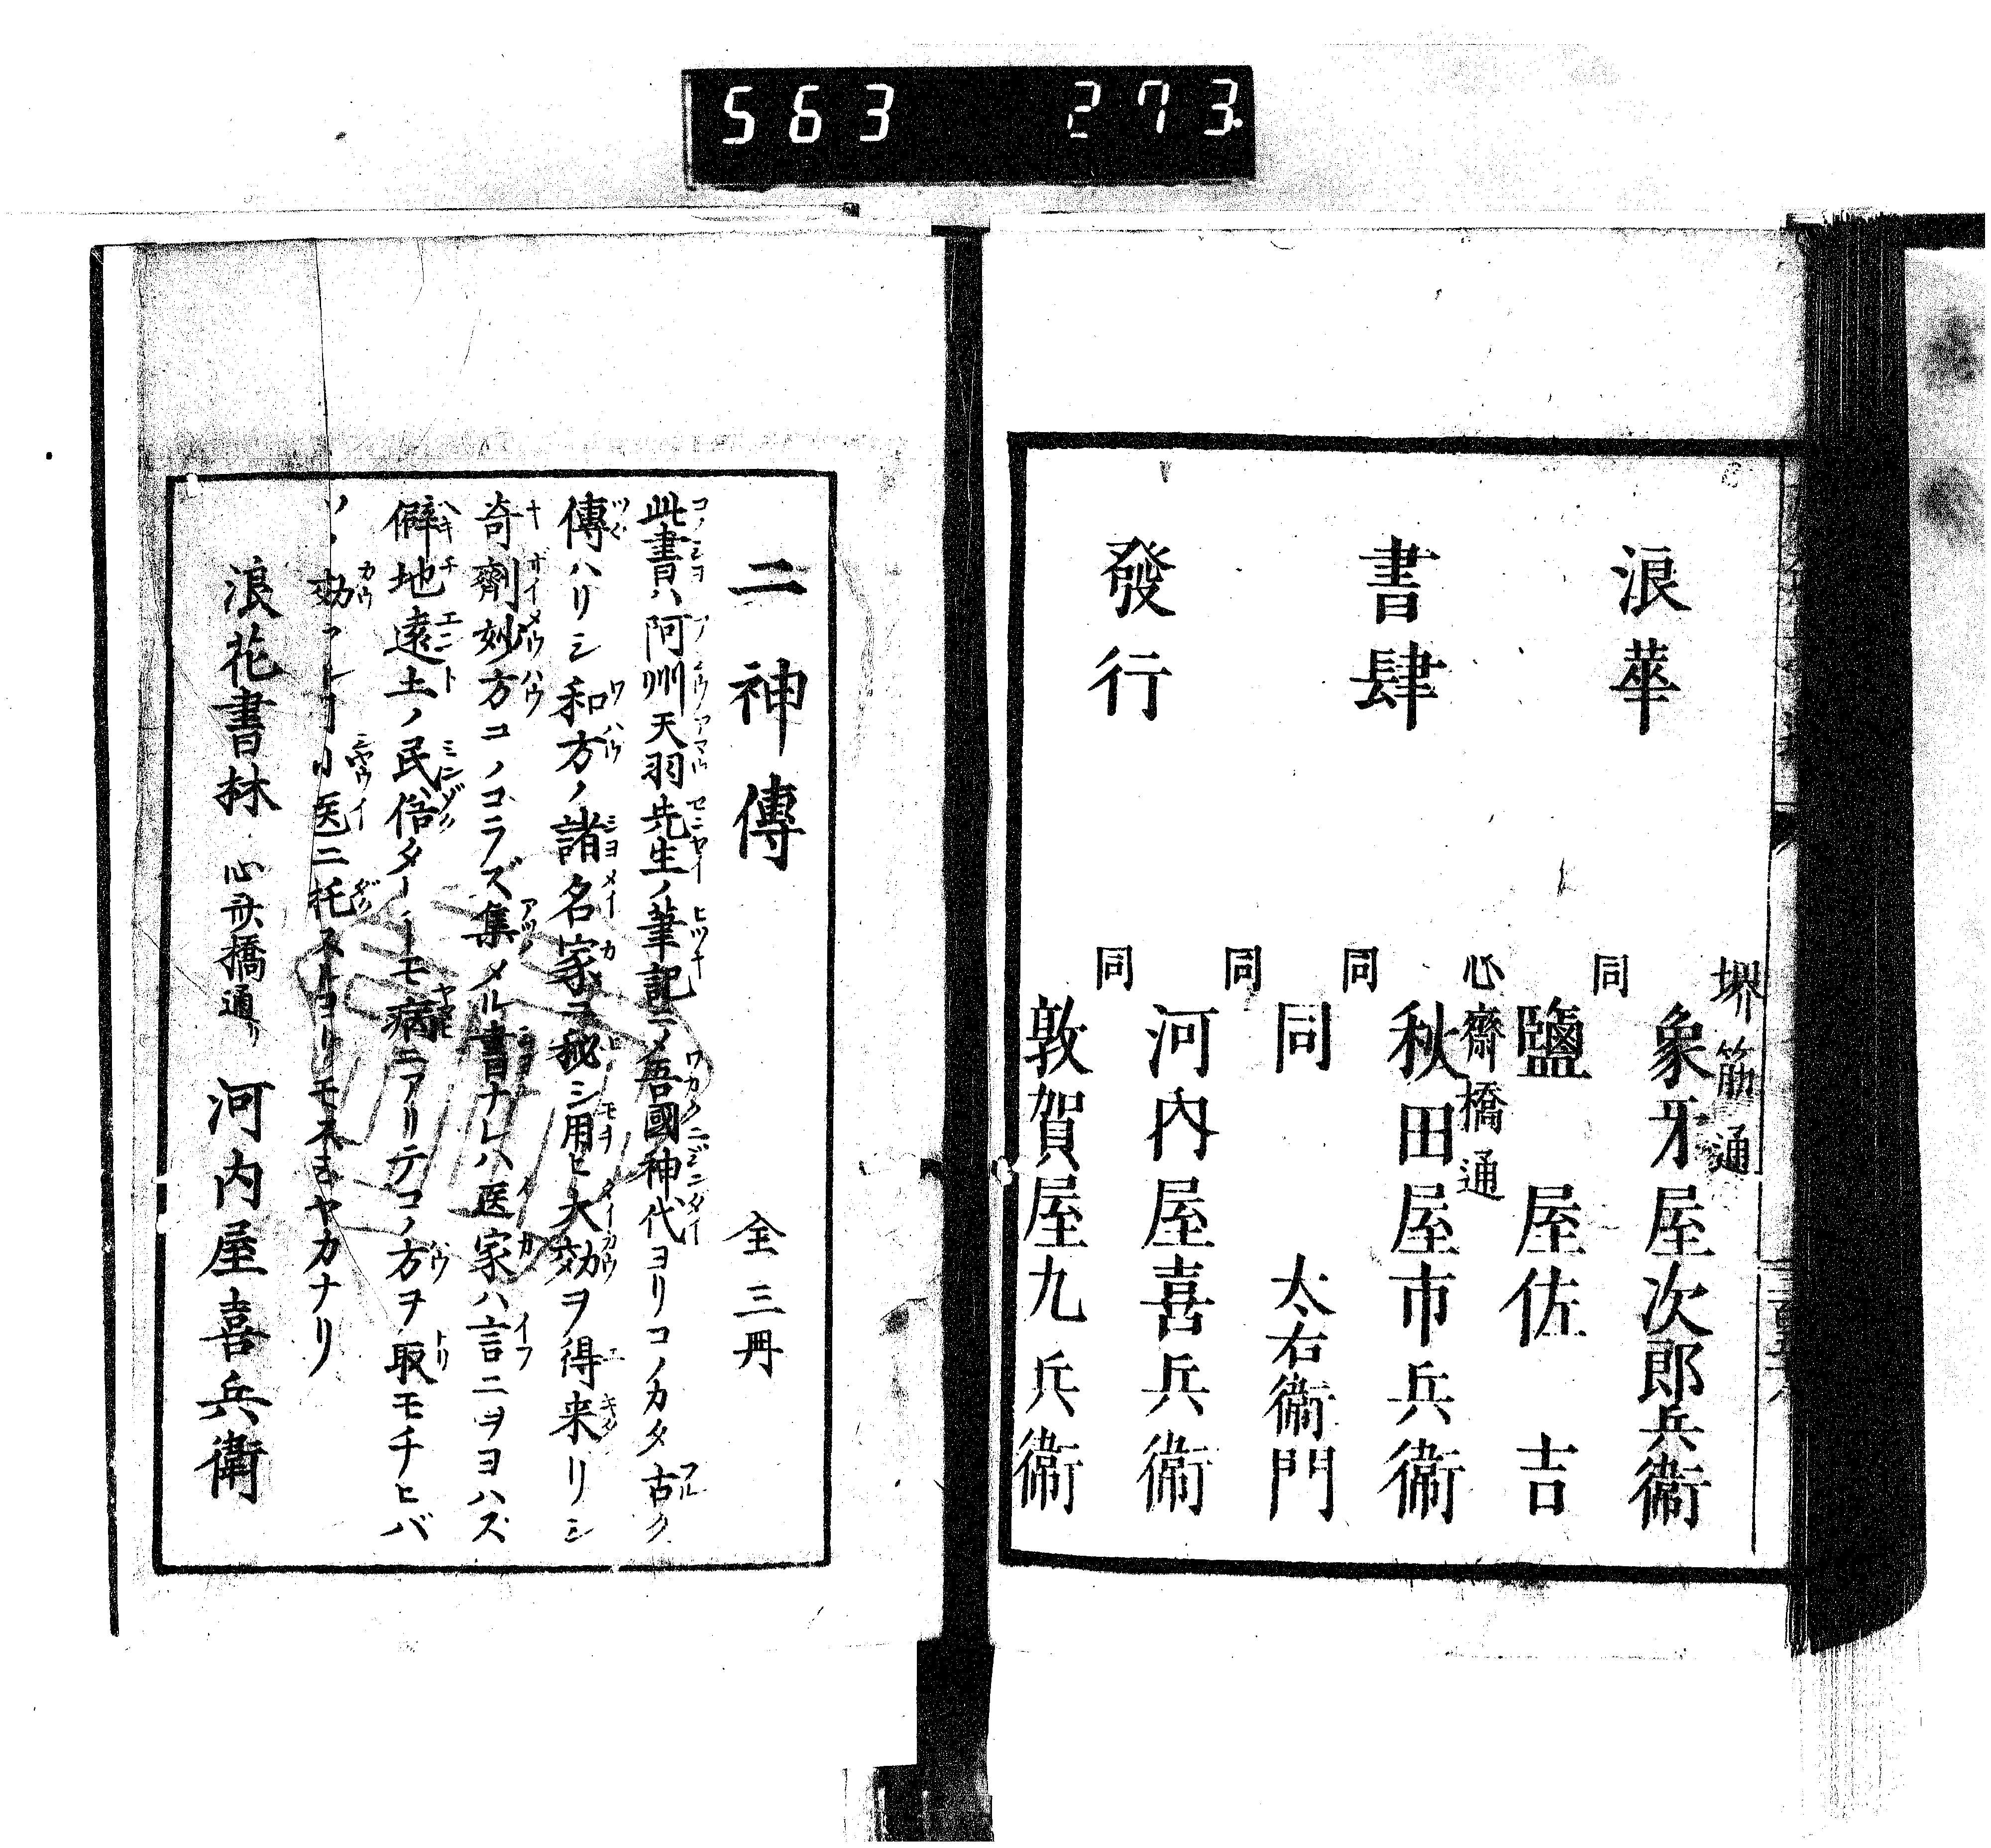 563 273
浪華
書肆
發行
堺筋通
象牙屋次郎兵衞
同
鹽屋佐吉
心齋橋通
秋田屋市兵衞
同
同 太右衞門
同
河内屋喜兵衞
同
敦賀屋九兵衞
二神傳 全三冊
此書ハ阿州天羽先生ノ筆記ニ〆吾國神代ヨリコノカタ古ク
傳ハリシ和方ノ諸名家コ秘シ用ヒ大効ヲ得来リシ
奇劑妙方コノコラズ集メル書ナレハ医家ハ言ニヲヨハズ
僻地遠土ノ民俗タリモ病ニアリテコノ方ヲ取モチヒバ
ソノ効 医ニ托スルヨリモスミヤカナリ
浪花書林 心斎橋通リ 河内屋喜兵衛